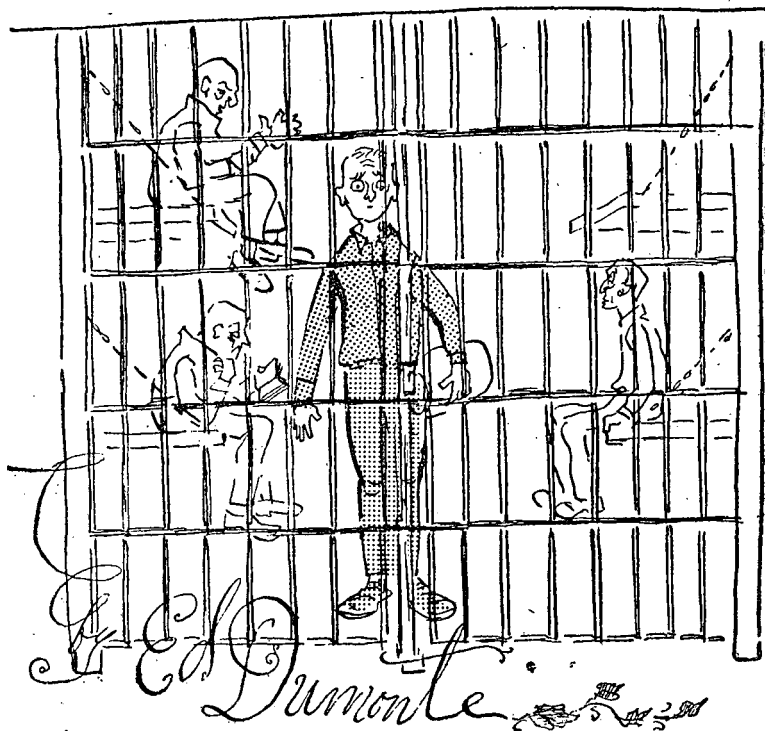 By Ed Dumonte